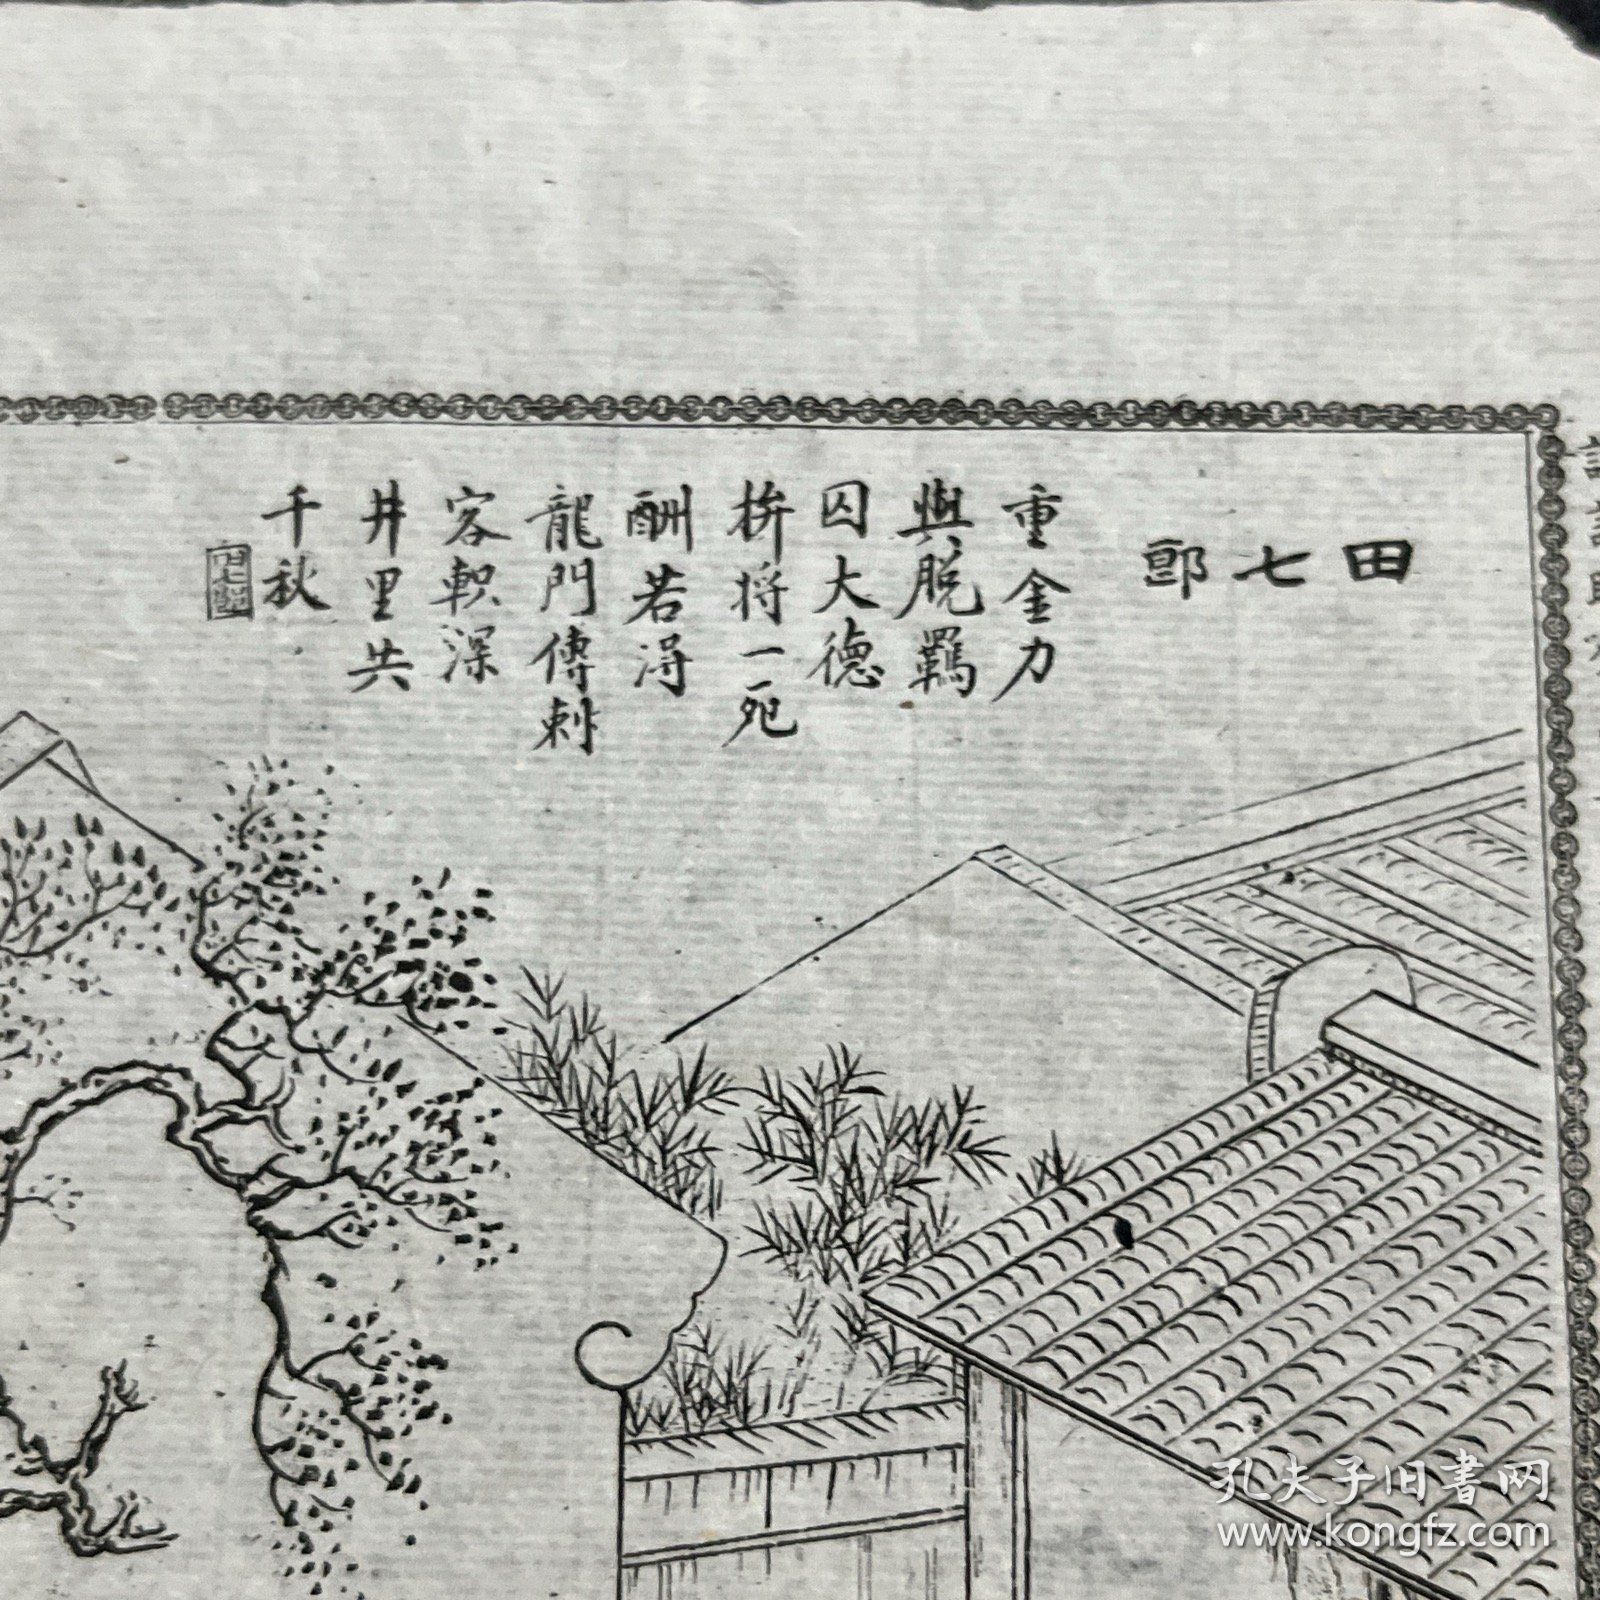 田七郎
重金力
與脫羈
囚大德
拚將一死
酬若淂
龍門傳刺
客軹深
井里共
千秋
孔夫子旧書网
www.kongfz.com